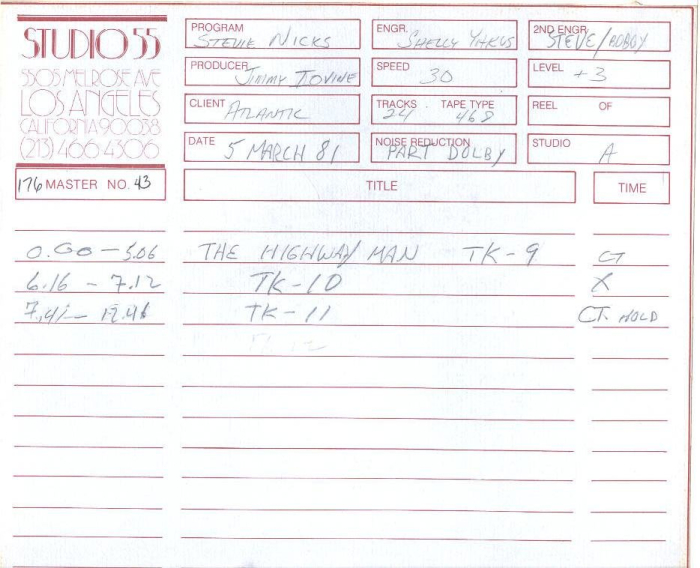 STUDIO 55
5505 MELROSE AVE
LOS ANGELES
CALIFORNIA 90038
(213) 466 4306
176 MASTER NO. 43
PROGRAM
STEVIE NICKS
ENGR.
SHELLY YAKUS
2ND ENGR.
STEVE/BOBBY
PRODUCER
JIMMY IOVINE
SPEED
30
LEVEL
+3
CLIENT
ATLANTIC
TRACKS TAPE TYPE
24 468
REEL OF
DATE
5 MARCH 81
NOISE REDUCTION
PART DOLBY
STUDIO
A
TITLE
TIME
0.00 - 5.06 THE HIGHWAY MAN TK-9 CT
6.16 - 7.12 TK-10 X
7.41 - 12.46 TK-11 CT. HOLD